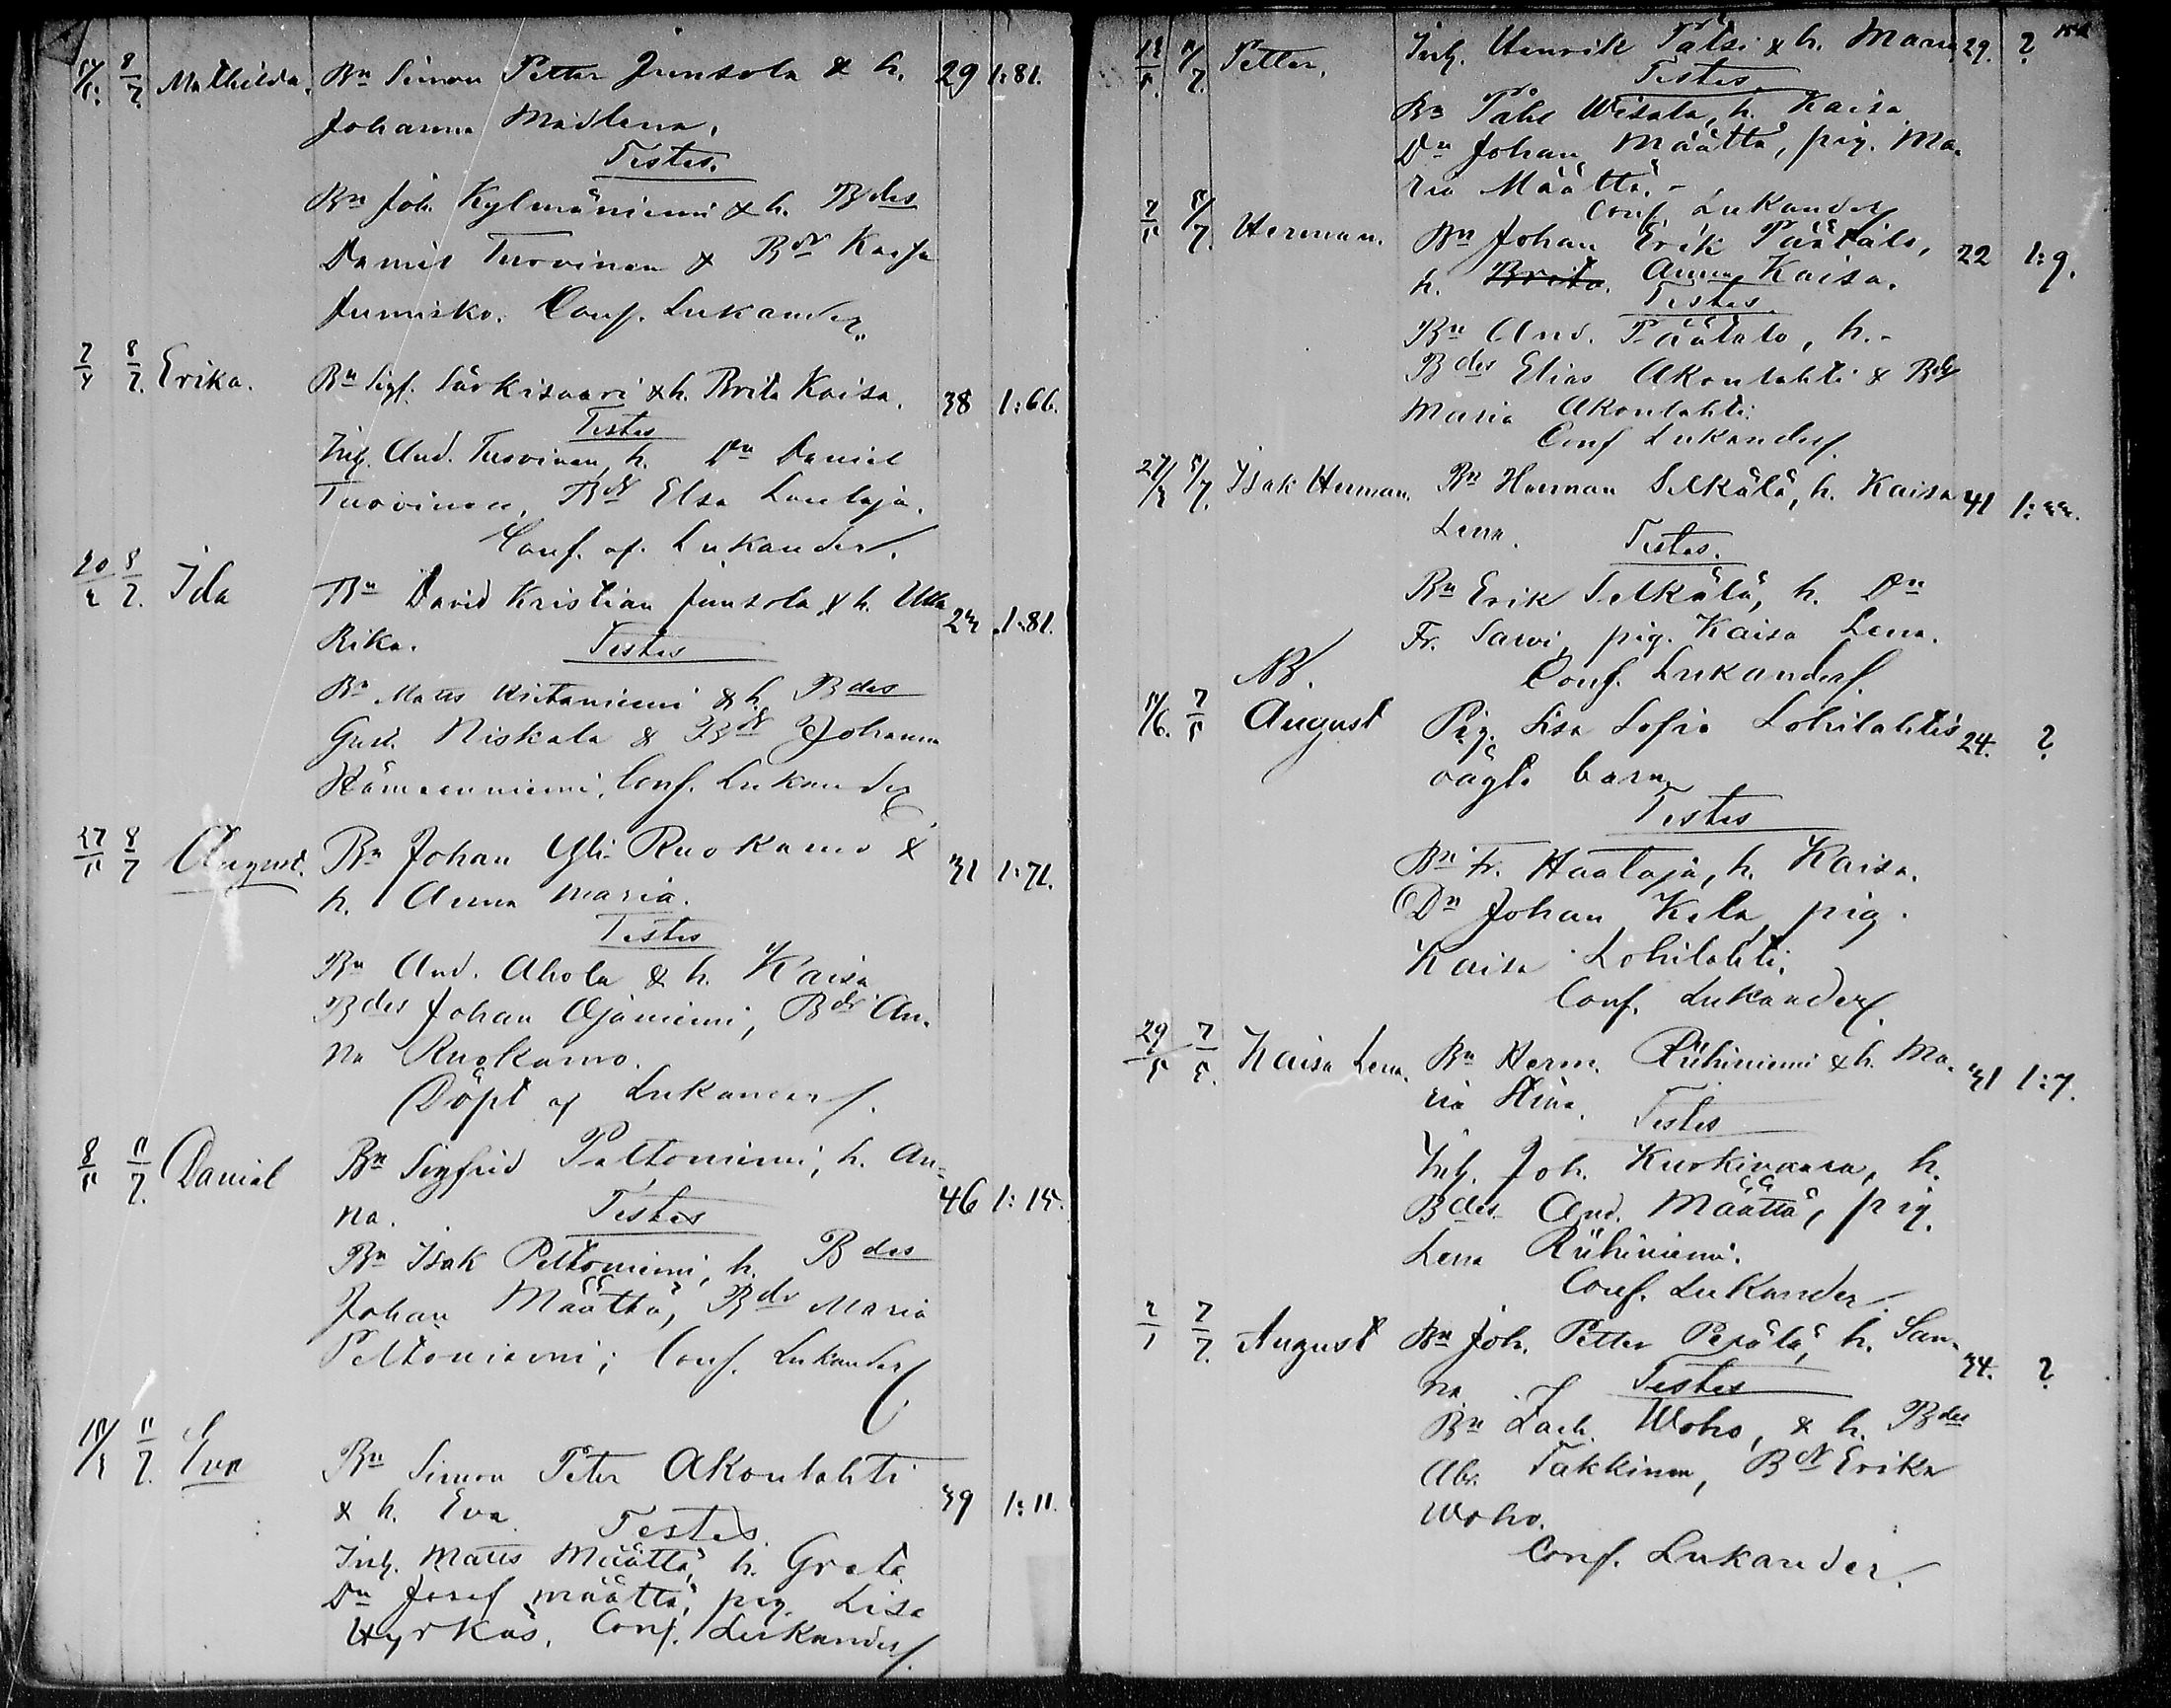 8/7 Mathilda. Bn Simon Petter Junsola & h. 29 1:81.
Johanna Madlena.
Testes.
Bn Joh. Kylmäniemi & h. Bdes
Daniel Turovinen & Bdr Kajsa
Jumisko. Conf. Lukander
8/7. Erika. Bn Sigf. Särkisaari & h. Brita Kaisa. 38 1:66.
Testes
Inh. And. Tuovinen, h. Dn Daniel
Tuovinen, Bdr Elsa Lautaja.
Conf. af Lukander.
8/7. Ida Bn David Kristian Junsola & h. Ulla 23 1:81.
Rika. Testes
Bn Matts Kietaniemi & h. Bdes
Gust. Niskala & Bdr Johanna
Hämeenniemi, Conf. Lukander
27/5 8/7 August. Bn Johan Yli-Ruokamo & 31 1:71.
h. Anna Maria.
Testes
Bn And. Ahola & h. Kaisa
Bdes Johan Ojaniemi, Bdr An-
na Ruokamo.
Döpt af Lukander.
8/5 11/7. Daniel Bn Sigfrid Peltoniemi, h. An- 46 1:15.
na. Testes
Bn Isak Peltoniemi, h. Bdes
Johan Määttä, Bdr Maria
Peltoniemi; Conf. Lukander
11/7. Eva Bn Simon Peter Akonlahti
& h. Eva 39 1:11.
Testes.
Inh. Matts Määttä, h. Greta
Dn Josef Määttä, pig. Lisa
Hyrkäs. Conf. Lukander.
Petter. Inh. Henrik Pätsi & h. Maria 29. ?
Testes.
Bn Påhl Wisala, h. Kaisa
Dn Johan Määttä, pig. Ma-
ria Määttä.-
Conf. Lukander
Herman. Bn Johan Erik Päätalo, 22 1:9.
h. Brita Anna Kaisa.
Testes.
Bn And. Päätalo, h.-
Bdes Elias Akonlahti & Bdr
Maria Akonlahti.
Conf Lukander.
Isak Herman. Bn Herman Selkälä, h. Kaisa 41 1:33.
Lena. Testes.
Bn Erik Selkälä, h. Dn
Fr. Sarvi, pig. Kaisa Lena.
NB. Conf. Lukander.
7/5 August Pig. Lisa Sofia Lohilahtis 24. ?
oägta barn
Testes
Bn Fr. Haataja, h. Kaisa.
Dn Johan Kela, pig.
Kaisa Lohilahti.
Conf. Lukander.
29/5 Kaisa Lena. Bn Herm. Riihiniemi & h. Ma- 31 1:7.
ria Stina. Testes
Inh. Joh. Kurkivaara, h.
Bdes And. Määttä, pig.
Lena Riihiniemi.
Conf. Lukander.
7/7. August Bn Joh. Petter Perälä, h. San- 34. ?
na. Testes
Bn Zach. Woho, & h. Bdes
Abr. Takkinen, Bdr Erika
Woho.
Conf. Lukander.